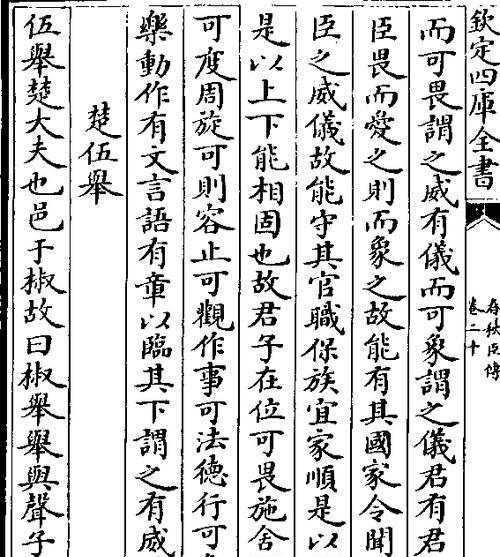 欽定四庫全書
春秋臣傳
卷二十
而可畏謂之威有儀而可象謂之儀君有君
臣畏而愛之則而象之故能有其國家令聞
臣之威儀故能守其官職保族宜家順是以
是以上下能相固也故君子在位可畏施舍
可度周旋可則容止可觀作事可法德行可
樂動作有文言語有章以臨其下謂之有威
楚伍舉
伍舉楚大夫也邑于椒故曰椒舉舉與聲子